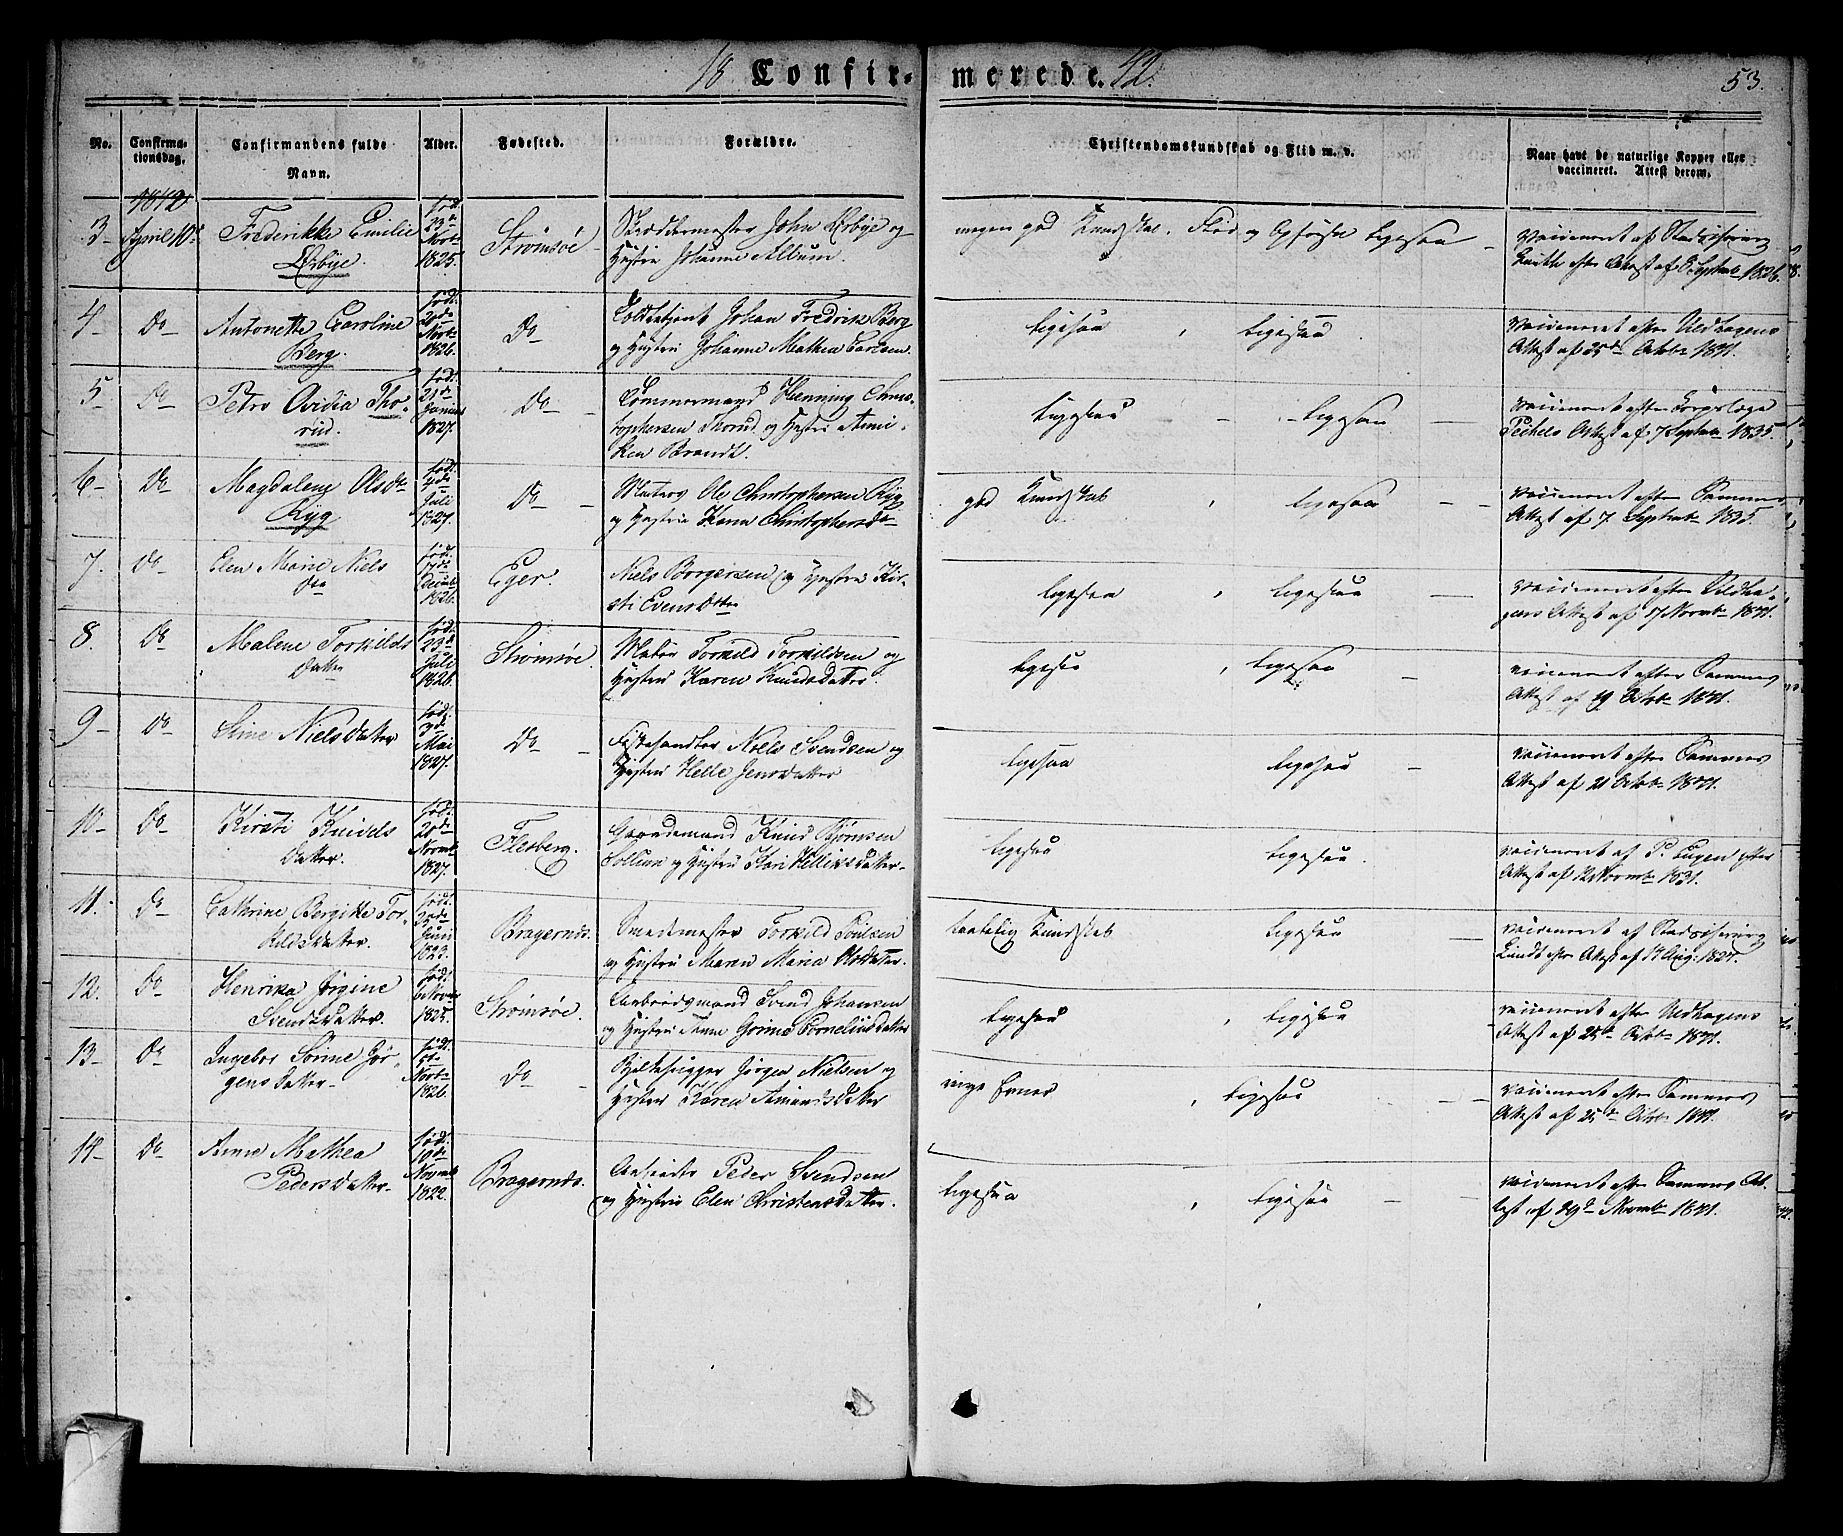 18 Confir-
merede. 42.
53.
No.
Confirma-
tionsdag.
Confirmandens fulde
Navn.
Alder.
Fødested.
Forældre.
Christendomskundskab og Flid m. v.
Naar havt de naturlige Kopper eller
vaccineret. Attest derom.
1842
3- April 10de Frederikke Emilie
Ørbye.
fød.
1825.
Strømsøe
Skræddermester John Ørbye og
Hustru Johanne Album.
megen god Kundskab, Flid og Opførsel ligesaa -
vaccineret af
efter Attest af Septbr 1826.
4- Do Antonette Caroline
Berg.
født
1826.
Do
Johan Fredrik Berg
og Hustru Johanne Mathea Carlsen.
ligesaa , ligesaa.
vaccineret efter Uldhagens
Attest af 25de Octob 1841.
5- Do Petra Ovidia Tho-
rud.
fød.
21de
Junius
1827.
Do -
Tømmermand Henning Chris-
tophersen Thorud og Hustru Anni-
ken Brandt.
ligesaa - ligesaa -
vaccineret efter Corpslæge
Attest af 7 Septemb 1835.
6- Do Magdalene Olsdr
Ryg
fød.
4de
Juli
1827.
Do -
Ole Christophersen Ryg
og Hustru Karen Christophersdr
god Kundskab , ligesaa -
vaccineret efter Sammes
Attest af 7. Septemb 1835.
7. Do Elen Marie Niels
dtr
født.
17de
Decmb
1826.
Eger.
Niels Borgersen og Hustru Kir-
sti Evensdtter
ligesaa , ligesaa -
vaccineret efter Uldha-
gens Attest af 17 Novmb 1841.
8. Do Malene Torkilds
Datter
fød.
23d
Juli
1826.
Strømsøe.
Torkild Torkildsen og
Hustru Karen Knudsdatter.
ligesaa , ligesaa -
vaccineret efter Sammes
Attest af 19 Octob 1841.
9- Do Stine Nielsdatter
fød.
3de
Mai
1827.
Do -
Niels Svendsen og
Hustru Helle Jensdatter
ligesaa ligesaa -
vaccineret efter Sammes
Attest af 21 Octob 1841.
10- Do Kirsti Knuds
Datter.
fød.
20de
Novmb
1827.
Flesberg.
Gaardemand Knud Bjørnsen
og Hustru Kari Helliksdatter-
ligesaa ligesaa.
vaccineret af P. Eugen efter
Attest af 12 Novmb 1831.
11. Do Cathrine Bergitte Tor-
kildsdatter.
fød.
Juni
Bragernæs.
Smedmester Torkild Poulsen
og Hustru Maren Maria Olsdatter.
taalelig Kundskab ligesaa -
vaccineret af
Lundt efter Attest af
12. Do Henrika Jørgine
Svendsdatter.
fød.
1825.
Strømsøe.
Arbeidsmand Svend Johansen
og Hustru Anne Corneliusdatter
ligesaa , ligesaa
vaccineret efter Uldhagens
Attest af 25de Octob 1841.
13- Do Ingebor Sørine Jør-
gensdatter-
født
15de
1826.
Do -
Jørgen Nielsen og
Hustru Karen Amundsdatter
ringe Evner , ligesaa - -
vaccineret efter Sammes
Attest af 25de Octob 1841.
14- Do Anne Mathea
Pedersdatter-
fød.
19de
Novmb
1822.
Bragernæs.
Peder Svendsen
og Hustru Elen Christensdatter.
ligesaa , ligesaa -
vaccineret efter Sammes At-
test af 29d Novmb 1841.